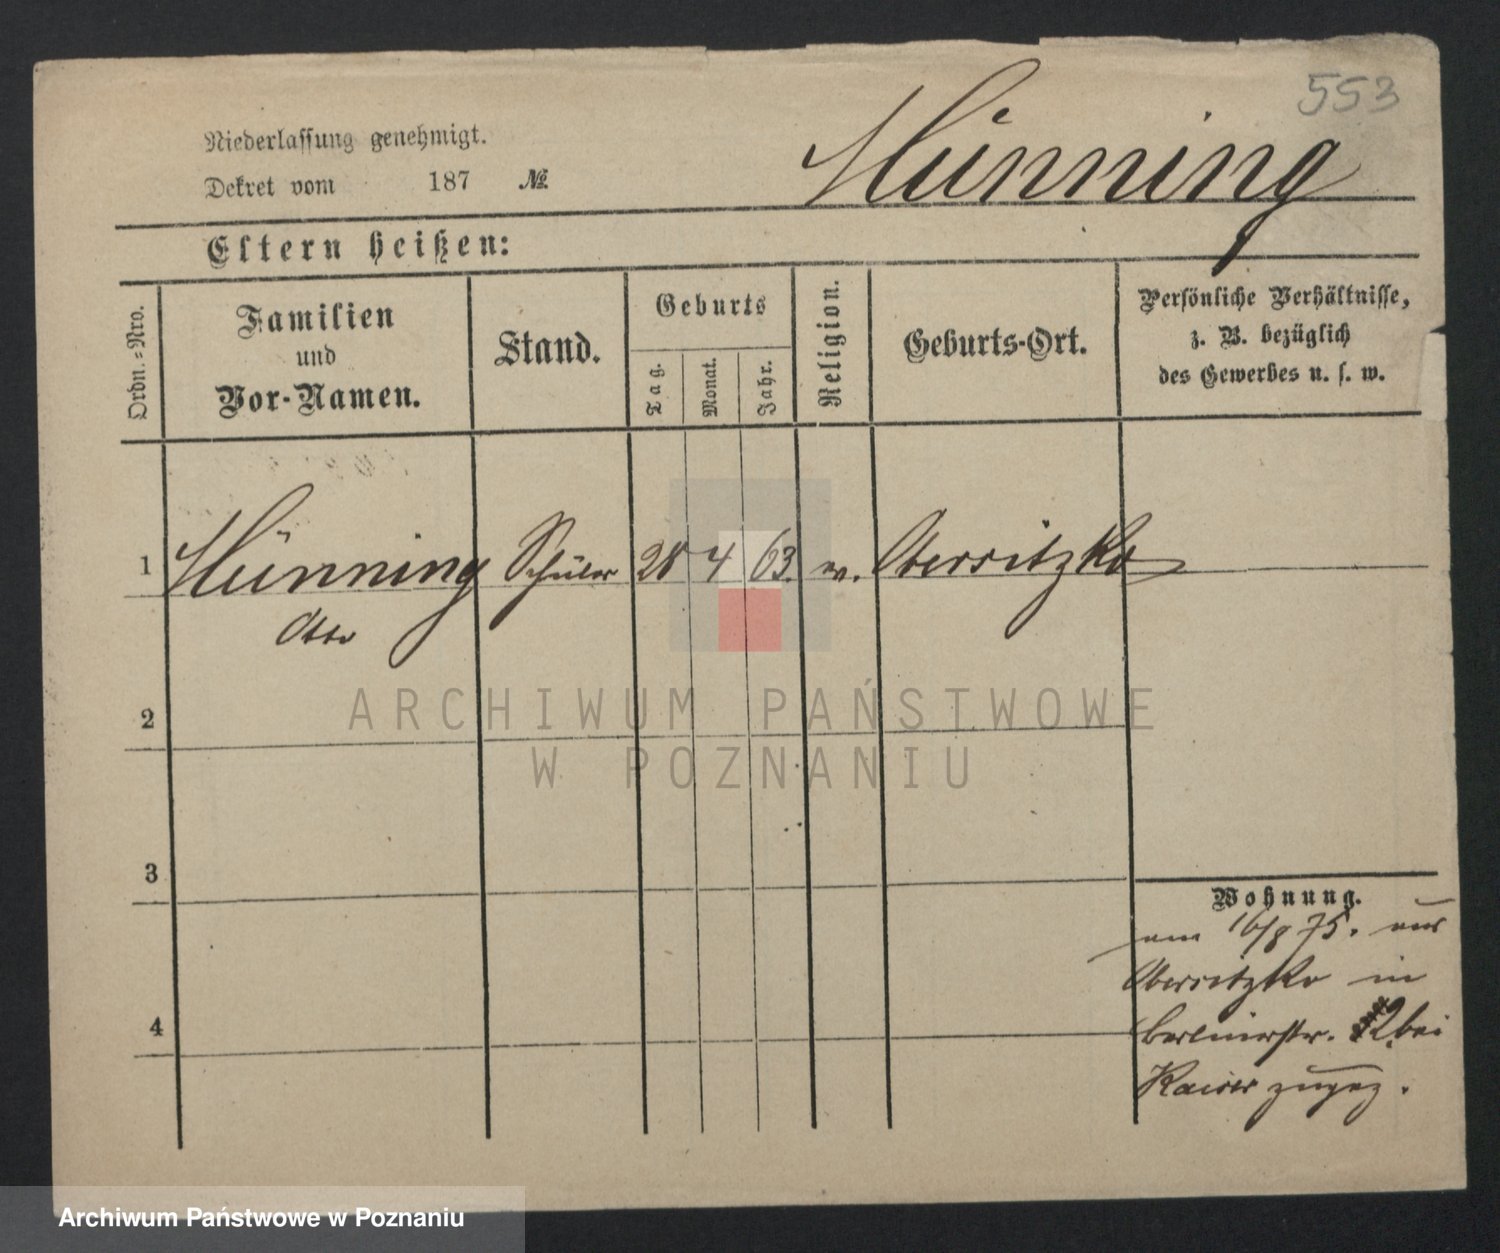 553
Niederlassung genehmigt.
Hünning
Dekret vom 187 №
Eltern heißen:
Ordn.-Nro.
Familien und Vor-Namen.
Stand.
Geburts
Tag.
Monat.
Jahr.
Religion.
Geburts-Ort.
Persönliche Verhältnisse,
z. B. bezüglich
des Gewerbes u. s. w.
1 Hünning Schüler 28 4 63. ev. Obersitzko
Otto
2
3
4
Wohnung.
am 16/8 75. aus
Obersitzko in
Berlinerstr. 12 bei
Kaiser zugez.
ARCHIWUM PAŃSTWOWE
W POZNANIU
Archiwum Państwowe w Poznaniu